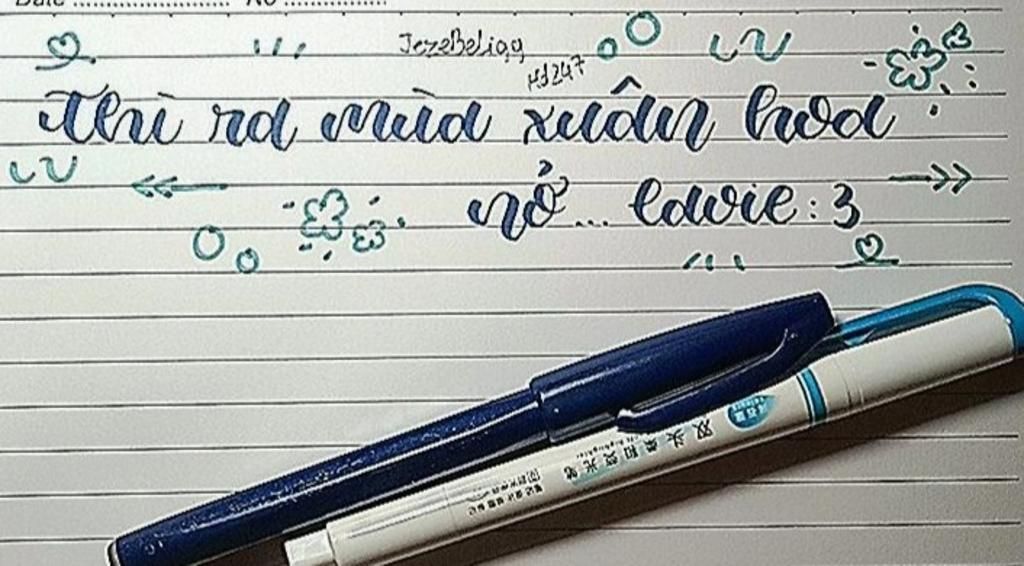 Date .............................. No ....................
JezeBeliqq
HJ247
Thì ra mùa xuân hoa
nở... lawie : 3
双头柔和荧光笔